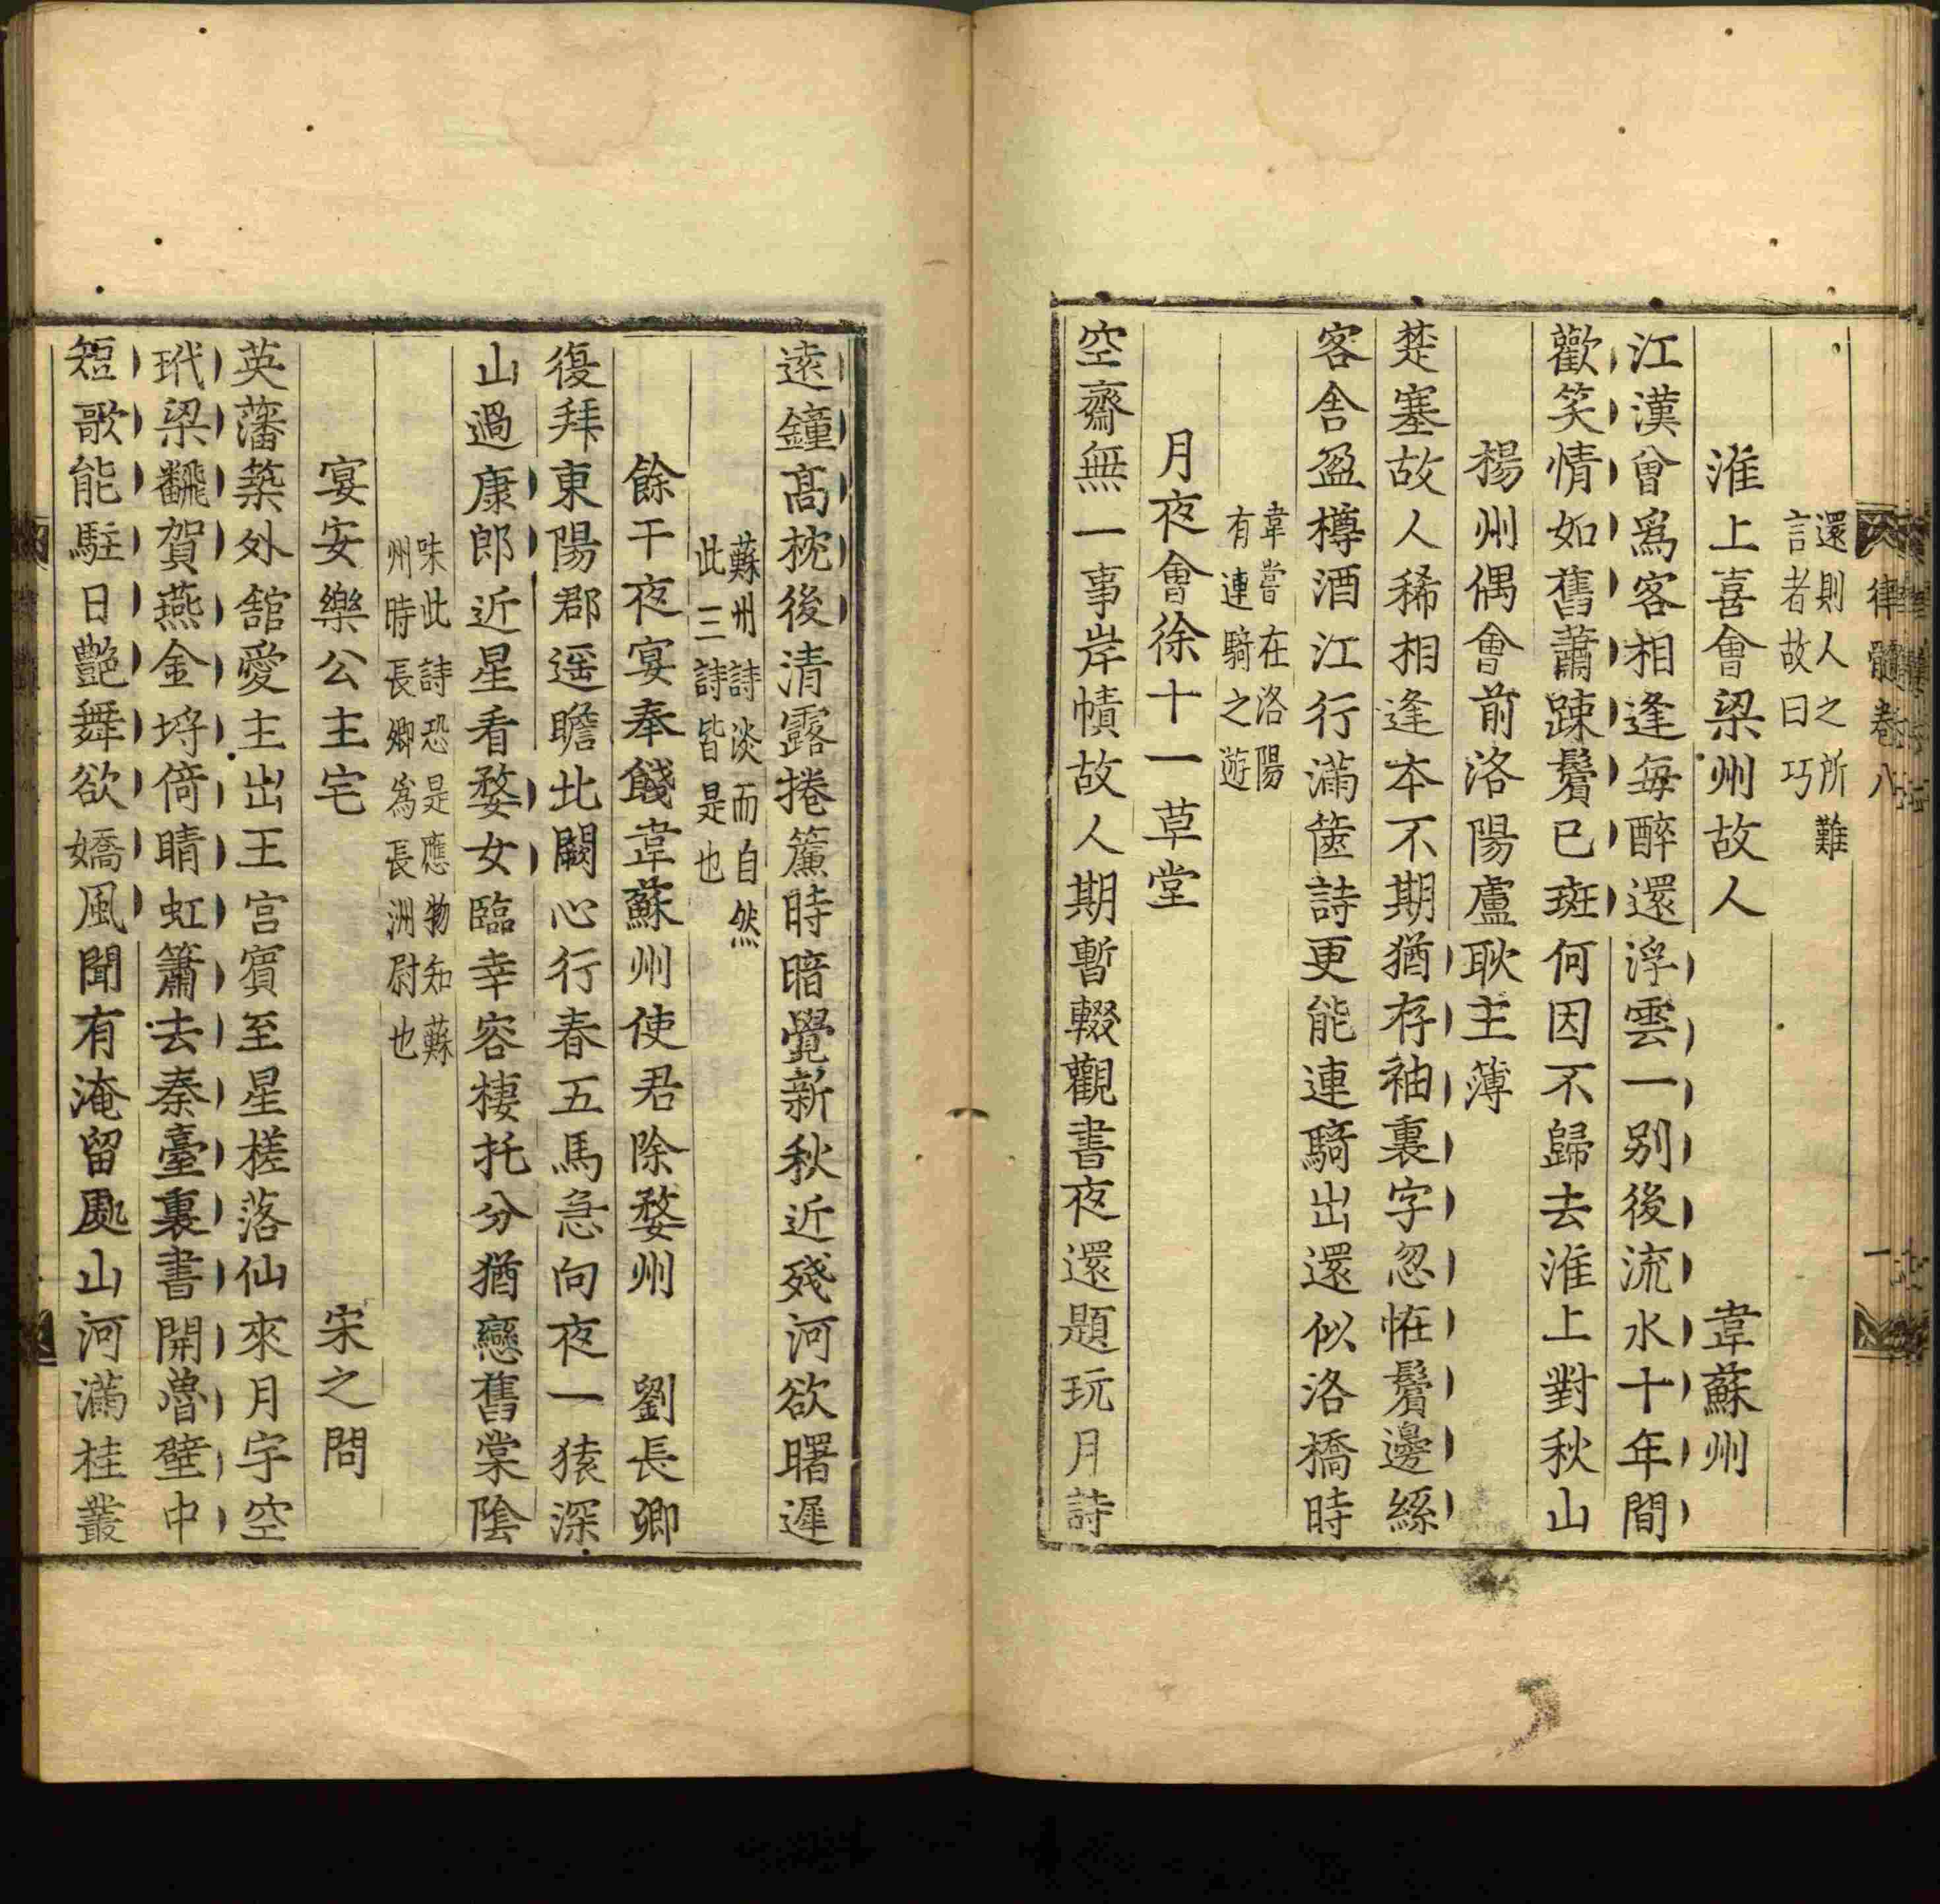 律髓卷八
還則人之所難
言者故曰巧
淮上喜會梁州故人 韋蘇州
江漢曾爲客相逢每醉還浮雲一別後流水十年間
歡笑情如舊蕭踈鬢已斑何因不歸去淮上對秋山
楊州偶會前洛陽盧耿主薄
楚塞故人稀相逢本不期猶存袖裏字忽恠鬢邊絲
客舍盈樽酒江行滿篋詩更能連騎出還似洛橋時
韋嘗在洛陽
有連騎之遊
月夜會徐十一草堂
空齋無一事岸幘故人期暫輟觀書夜還題玩月詩
遠鐘高枕後清露捲簾時暗覺新秋近殘河欲曙遲
蘇州詩淡而自然
此三詩皆是也
餘干夜宴奉餞韋蘇州使君除婺州 劉長卿
復拜東陽郡遥瞻北闕心行春五馬急向夜一猿深
山過康郎近星看婺女臨幸容棲托分猶戀舊棠陰
味此詩恐是應物知蘇
州時長卿爲長洲尉也
宴安樂公主宅 宋之問
英藩築外舘愛主出王宮賓至星槎落仙來月宇空
玳梁飜賀燕金埒倚晴虹簫去秦臺裏書開魯壁中
短歌能駐日艷舞欲嬌風聞有淹留處山河滿桂叢